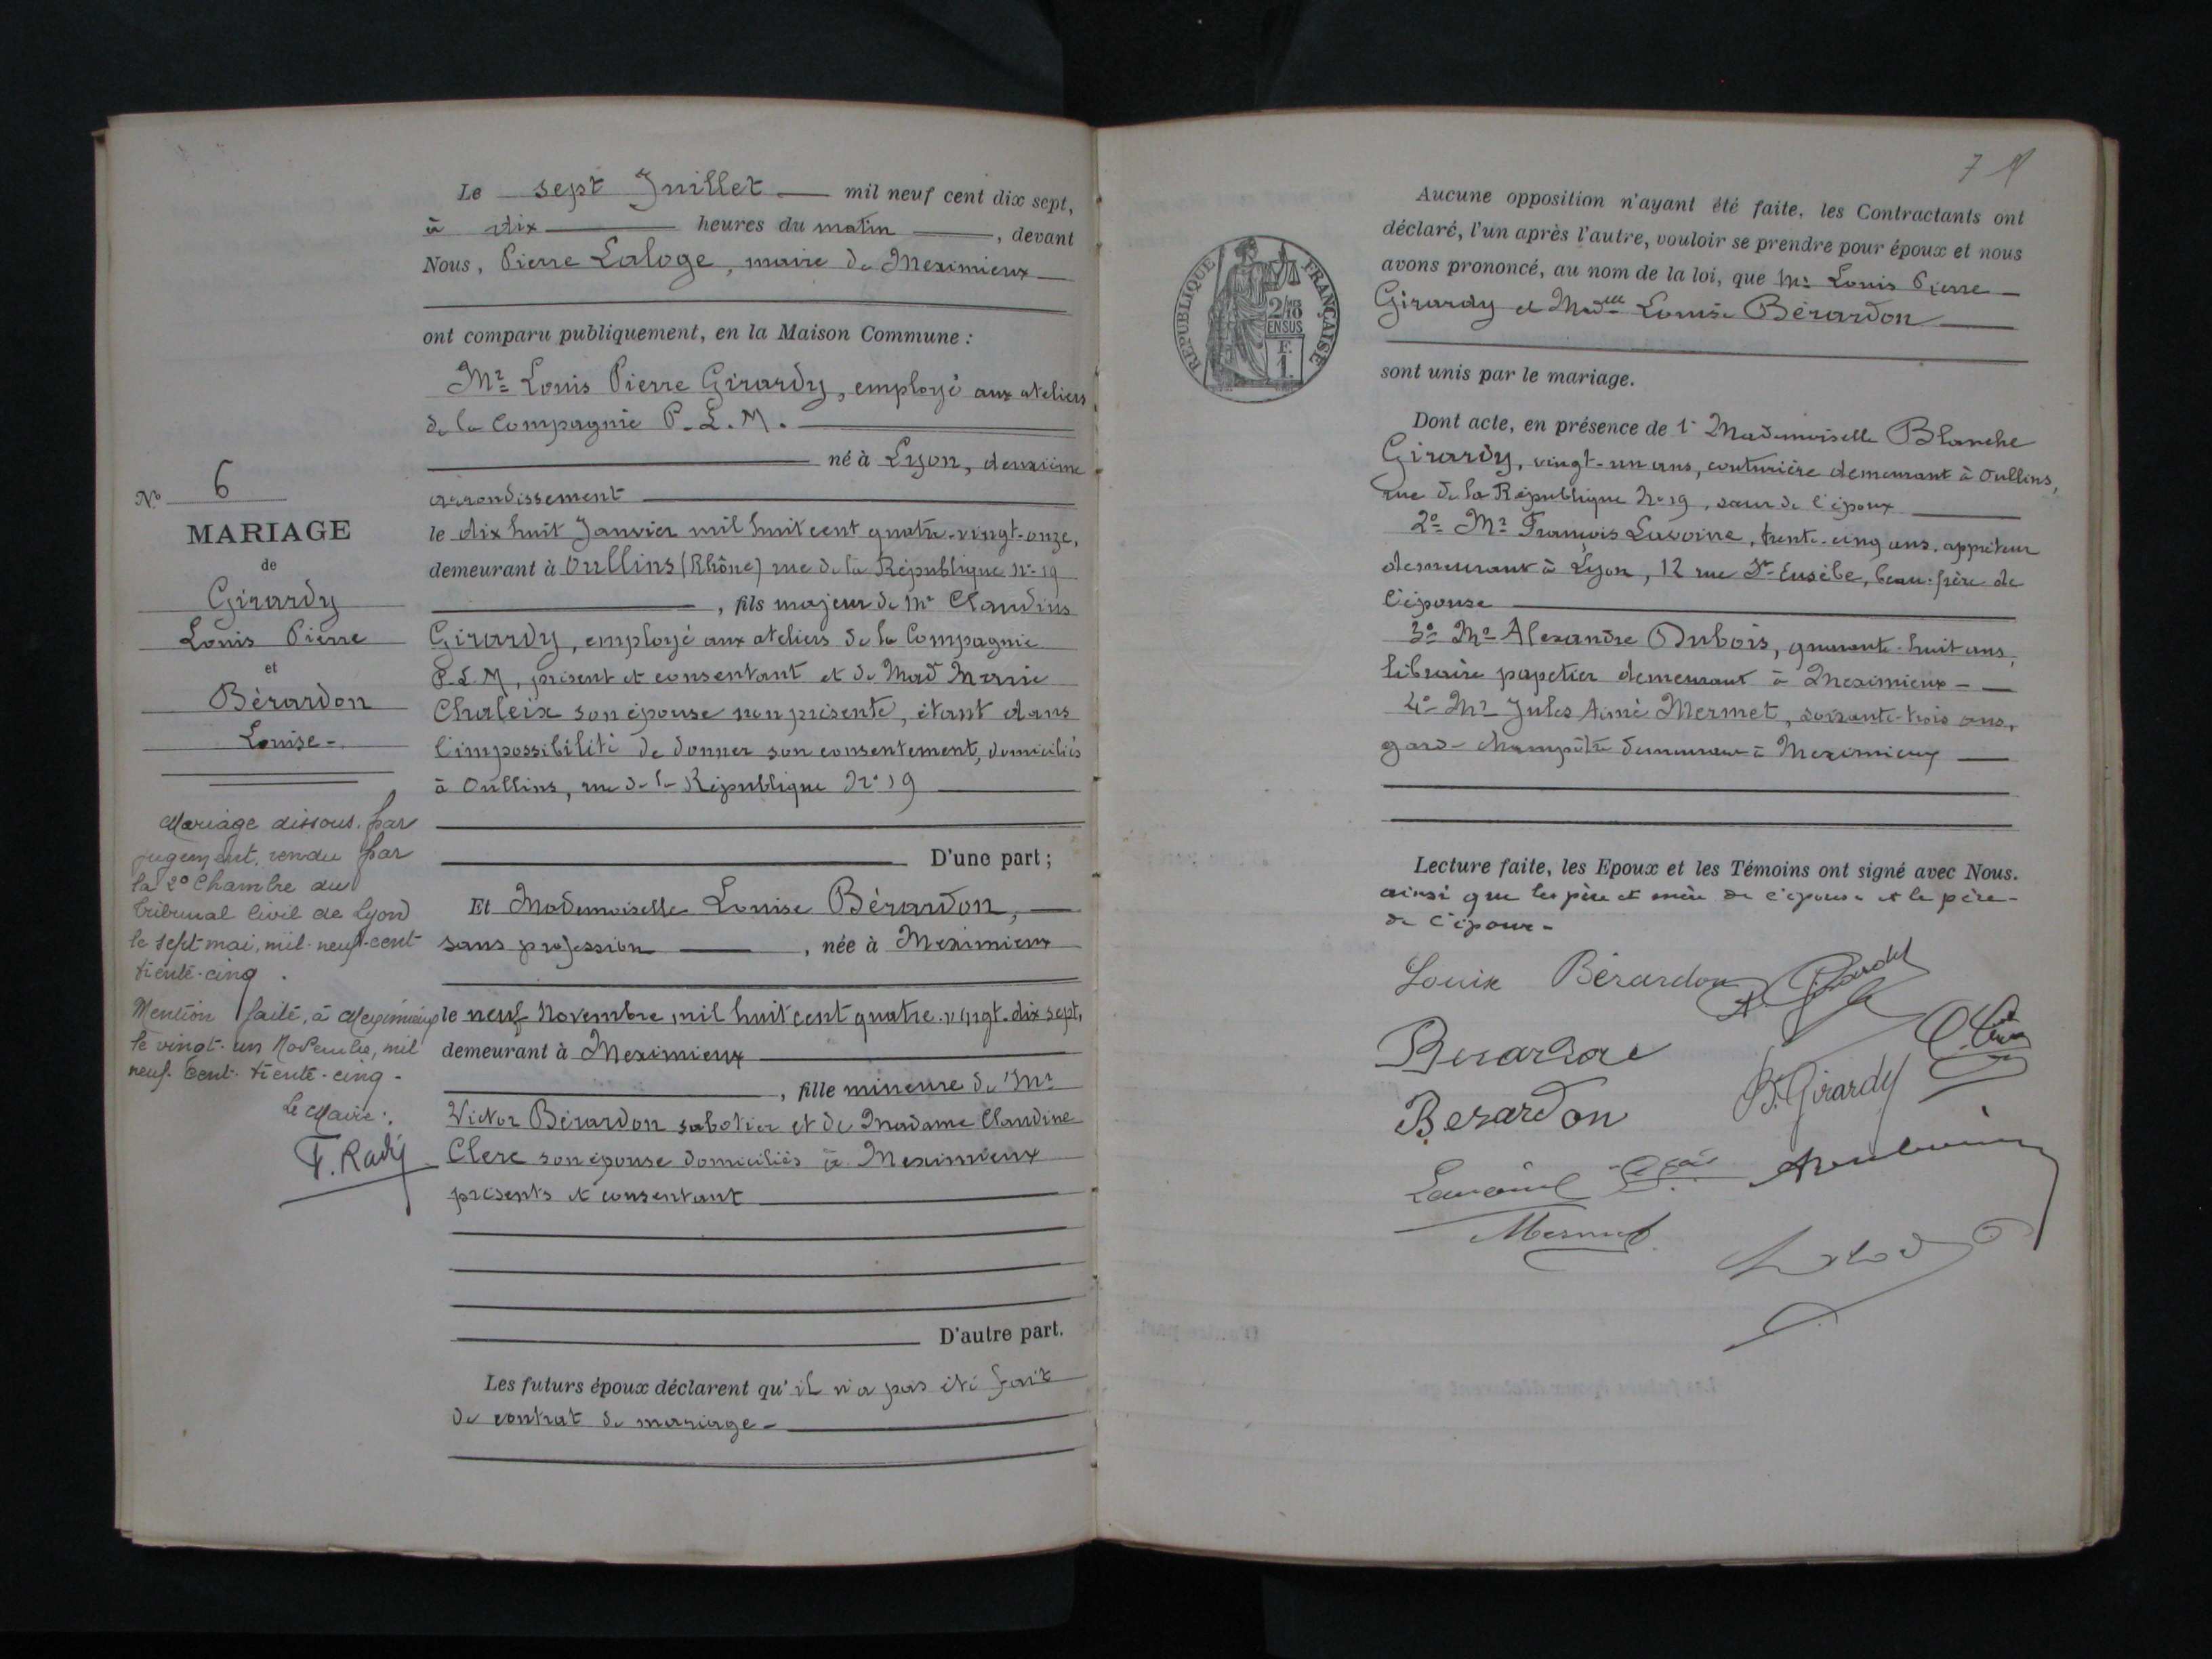 Le sept Juillet mil neuf cent dix sept,
à dix heures du matin, devant
Nous, Pierre Laloge, maire de Meximieux
ont comparu publiquement, en la Maison Commune :
Mr Louis Pierre Girardy, employé aux ateliers
de la Compagnie P.L.M.
né à Lyon, deuxième
arrondissement
le dix huit Janvier mil huit cent quatre-vingt-onze,
demeurant à Oullins (Rhône) rue de la République No 19
, fils majeur de Mr Claudius
Girardy, employé aux ateliers de la Compagnie
P.L.M, présent et consentant et de Mad Marie
Chaleix son épouse non présente, étant dans
l'impossibilité de donner son consentement, domiciliés
à Oullins, rue de la République No 19
D'une part ;
Et Mademoiselle Louise Bérardon,
sans profession, née à Meximieux
le neuf Novembre mil huit cent quatre-vingt-dix sept,
demeurant à Meximieux
, fille mineure de Mr
Victor Bérardon sabotier et de Madame Claudine
Clerc son épouse domiciliés à Meximieux
présents et consentant
D'autre part.
Les futurs époux déclarent qu'il n'a pas été fait
de contrat de mariage -
No 6
MARIAGE
de
Girardy
Louis Pierre
et
Bérardon
Louise -
Mariage dissous par
jugement, rendu par
la 2e Chambre du
Tribunal Civil de Lyon
le sept mai, mil-neuf-cent
trente-cinq.
Mention faite, à Meximieux
le vingt-un Novembre, mil
neuf-cent-trente-cinq -
Le Maire :
F. Rady
7
RÉPUBLIQUE FRANÇAISE
2/10
EN SUS
F.
1.
Aucune opposition n'ayant été faite, les Contractants ont
déclaré, l'un après l'autre, vouloir se prendre pour époux et nous
avons prononcé, au nom de la loi, que Mr Louis Pierre
Girardy et Madlle Louise Bérardon
sont unis par le mariage.
Dont acte, en présence de 1o Mademoiselle Blanche
Girardy, vingt-un ans, couturière demeurant à Oullins,
rue de la République No 19, sœur de l'époux
2o Mr François Lavoine, trente-cinq ans, apprêteur
demeurant à Lyon, 12 rue St-Eusèbe, beau-frère de
l'épouse
3o Mr Alexandre Dubois, quarante-huit ans,
libraire papetier demeurant à Meximieux -
4o Mr Jules Aimé Mermet, soixante-trois ans,
garde-champêtre demeurant à Meximieux
Lecture faite, les Epoux et les Témoins ont signé avec Nous.
ainsi que les père et mère de l'épouse et le père
de l'époux -
Louise Bérardon
Berardon
B. Girardy
Berardon
Lavoine
Mermet